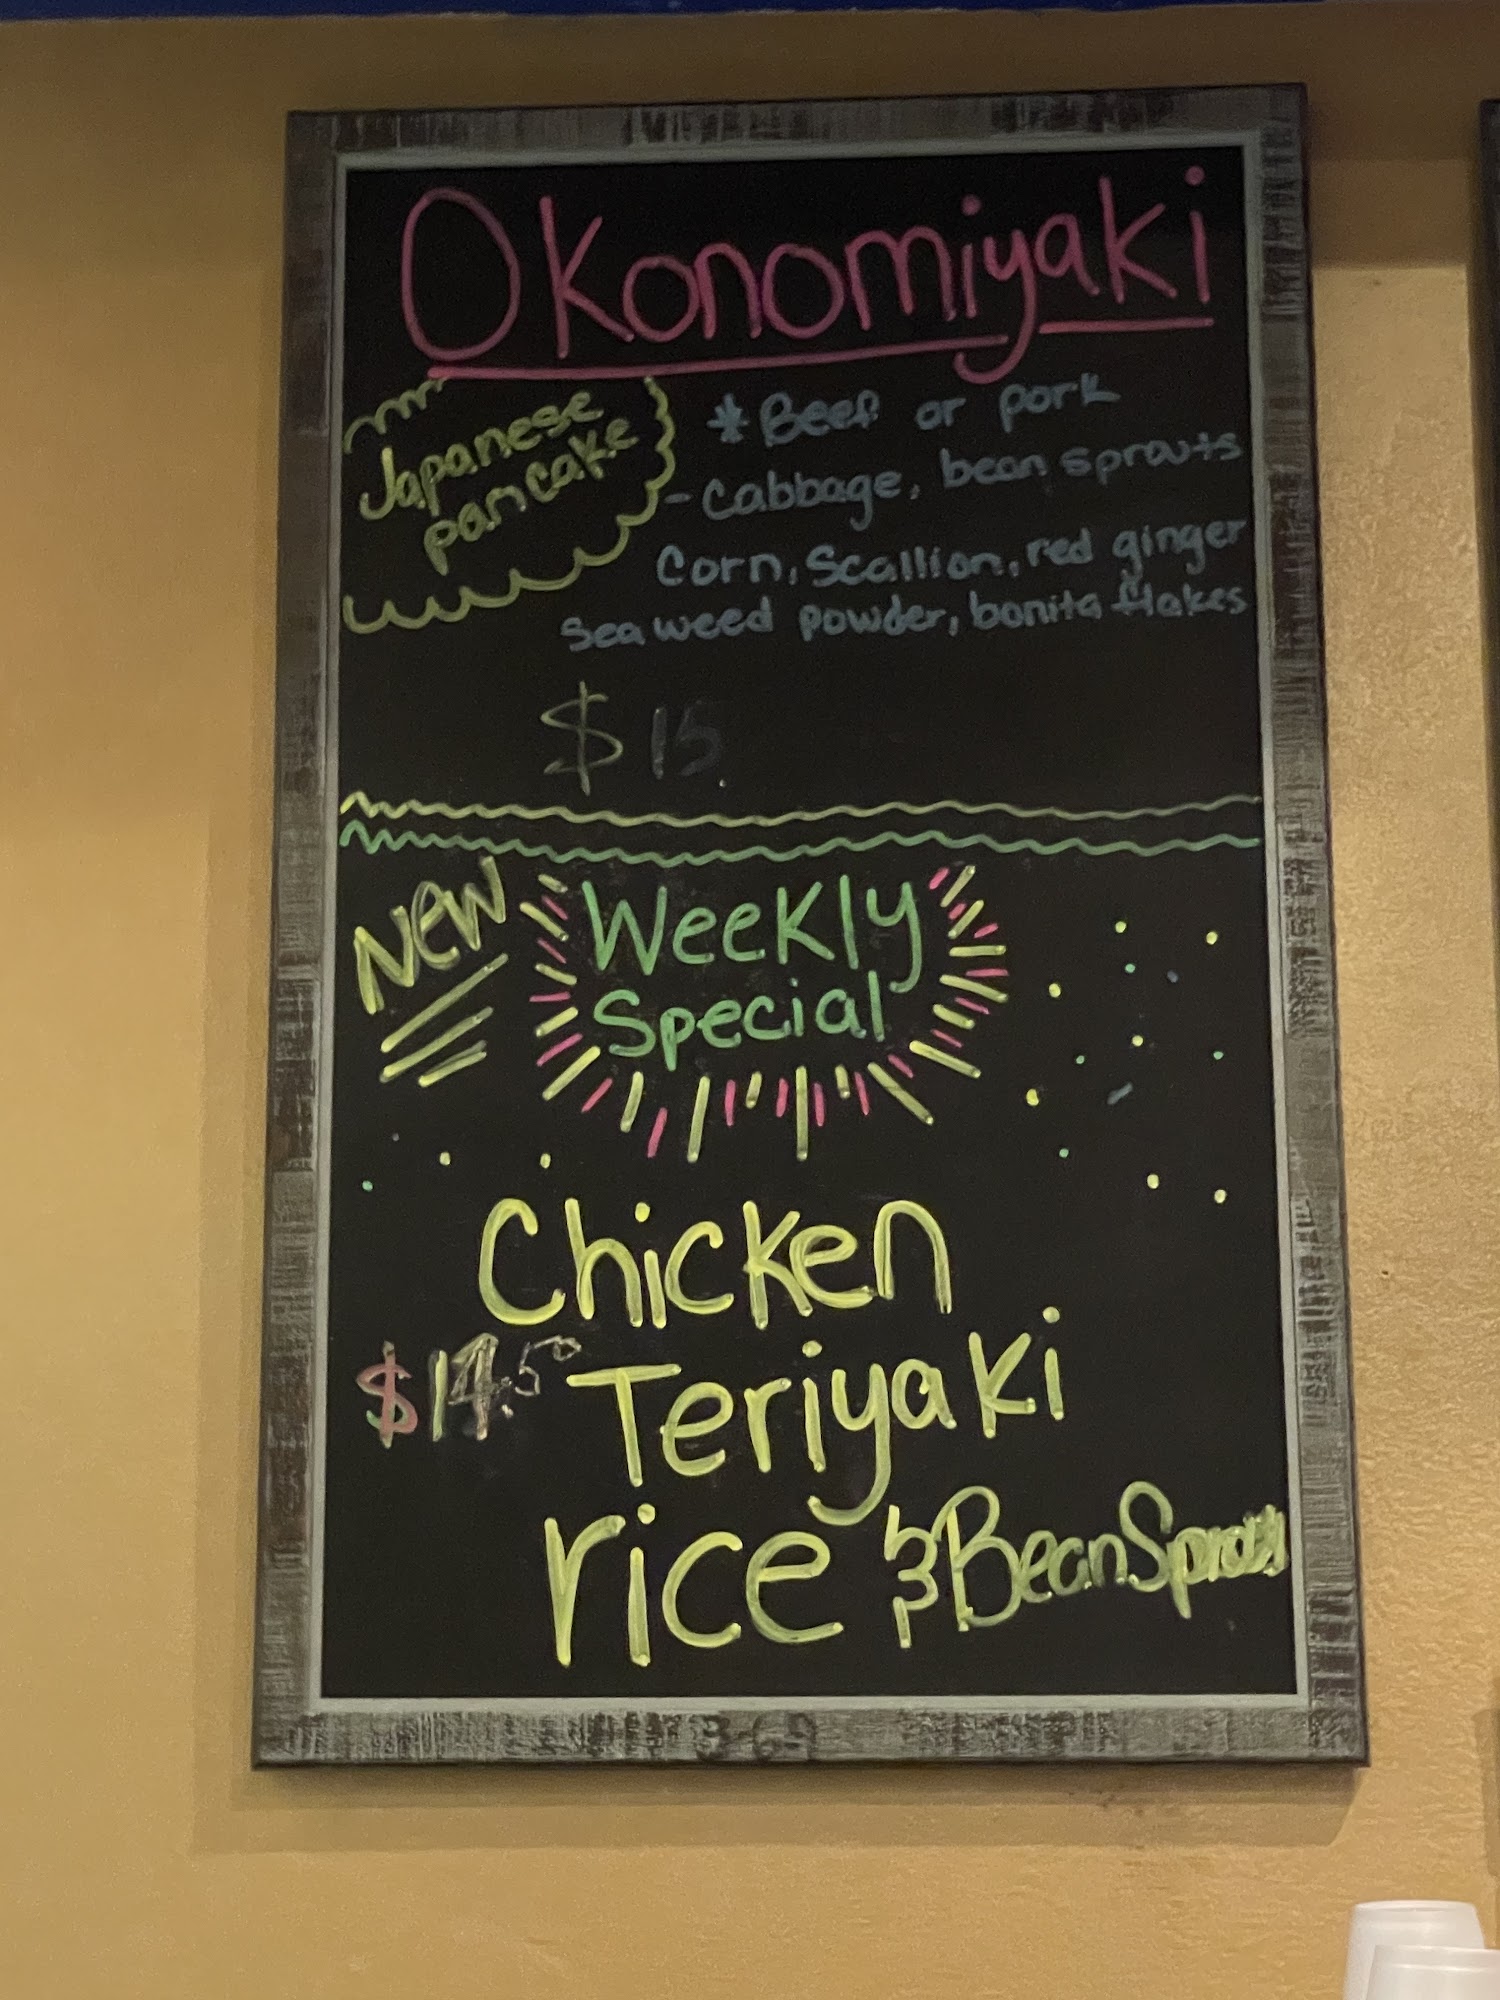 Okonomiyaki
Japanese
pancake
*Beef or pork
- Cabbage, bean sprouts
Corn, Scallion, red ginger
Seaweed powder, bonita flakes
$15
New
Weekly
Special
Chicken
$14.50
Teriyaki
rice & Bean Sprouts